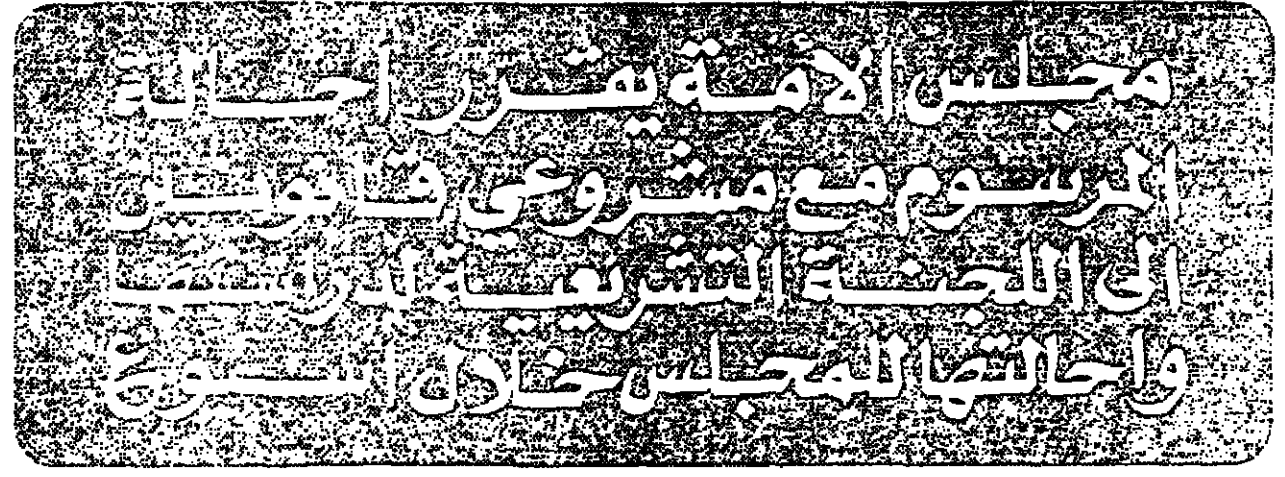 مجلس الأمة يقرر احالة
المرسوم مع مشروعي قانونين
الى اللجنة التشريعية لدراستها
واحالتها للمجلس خلال اسبوع